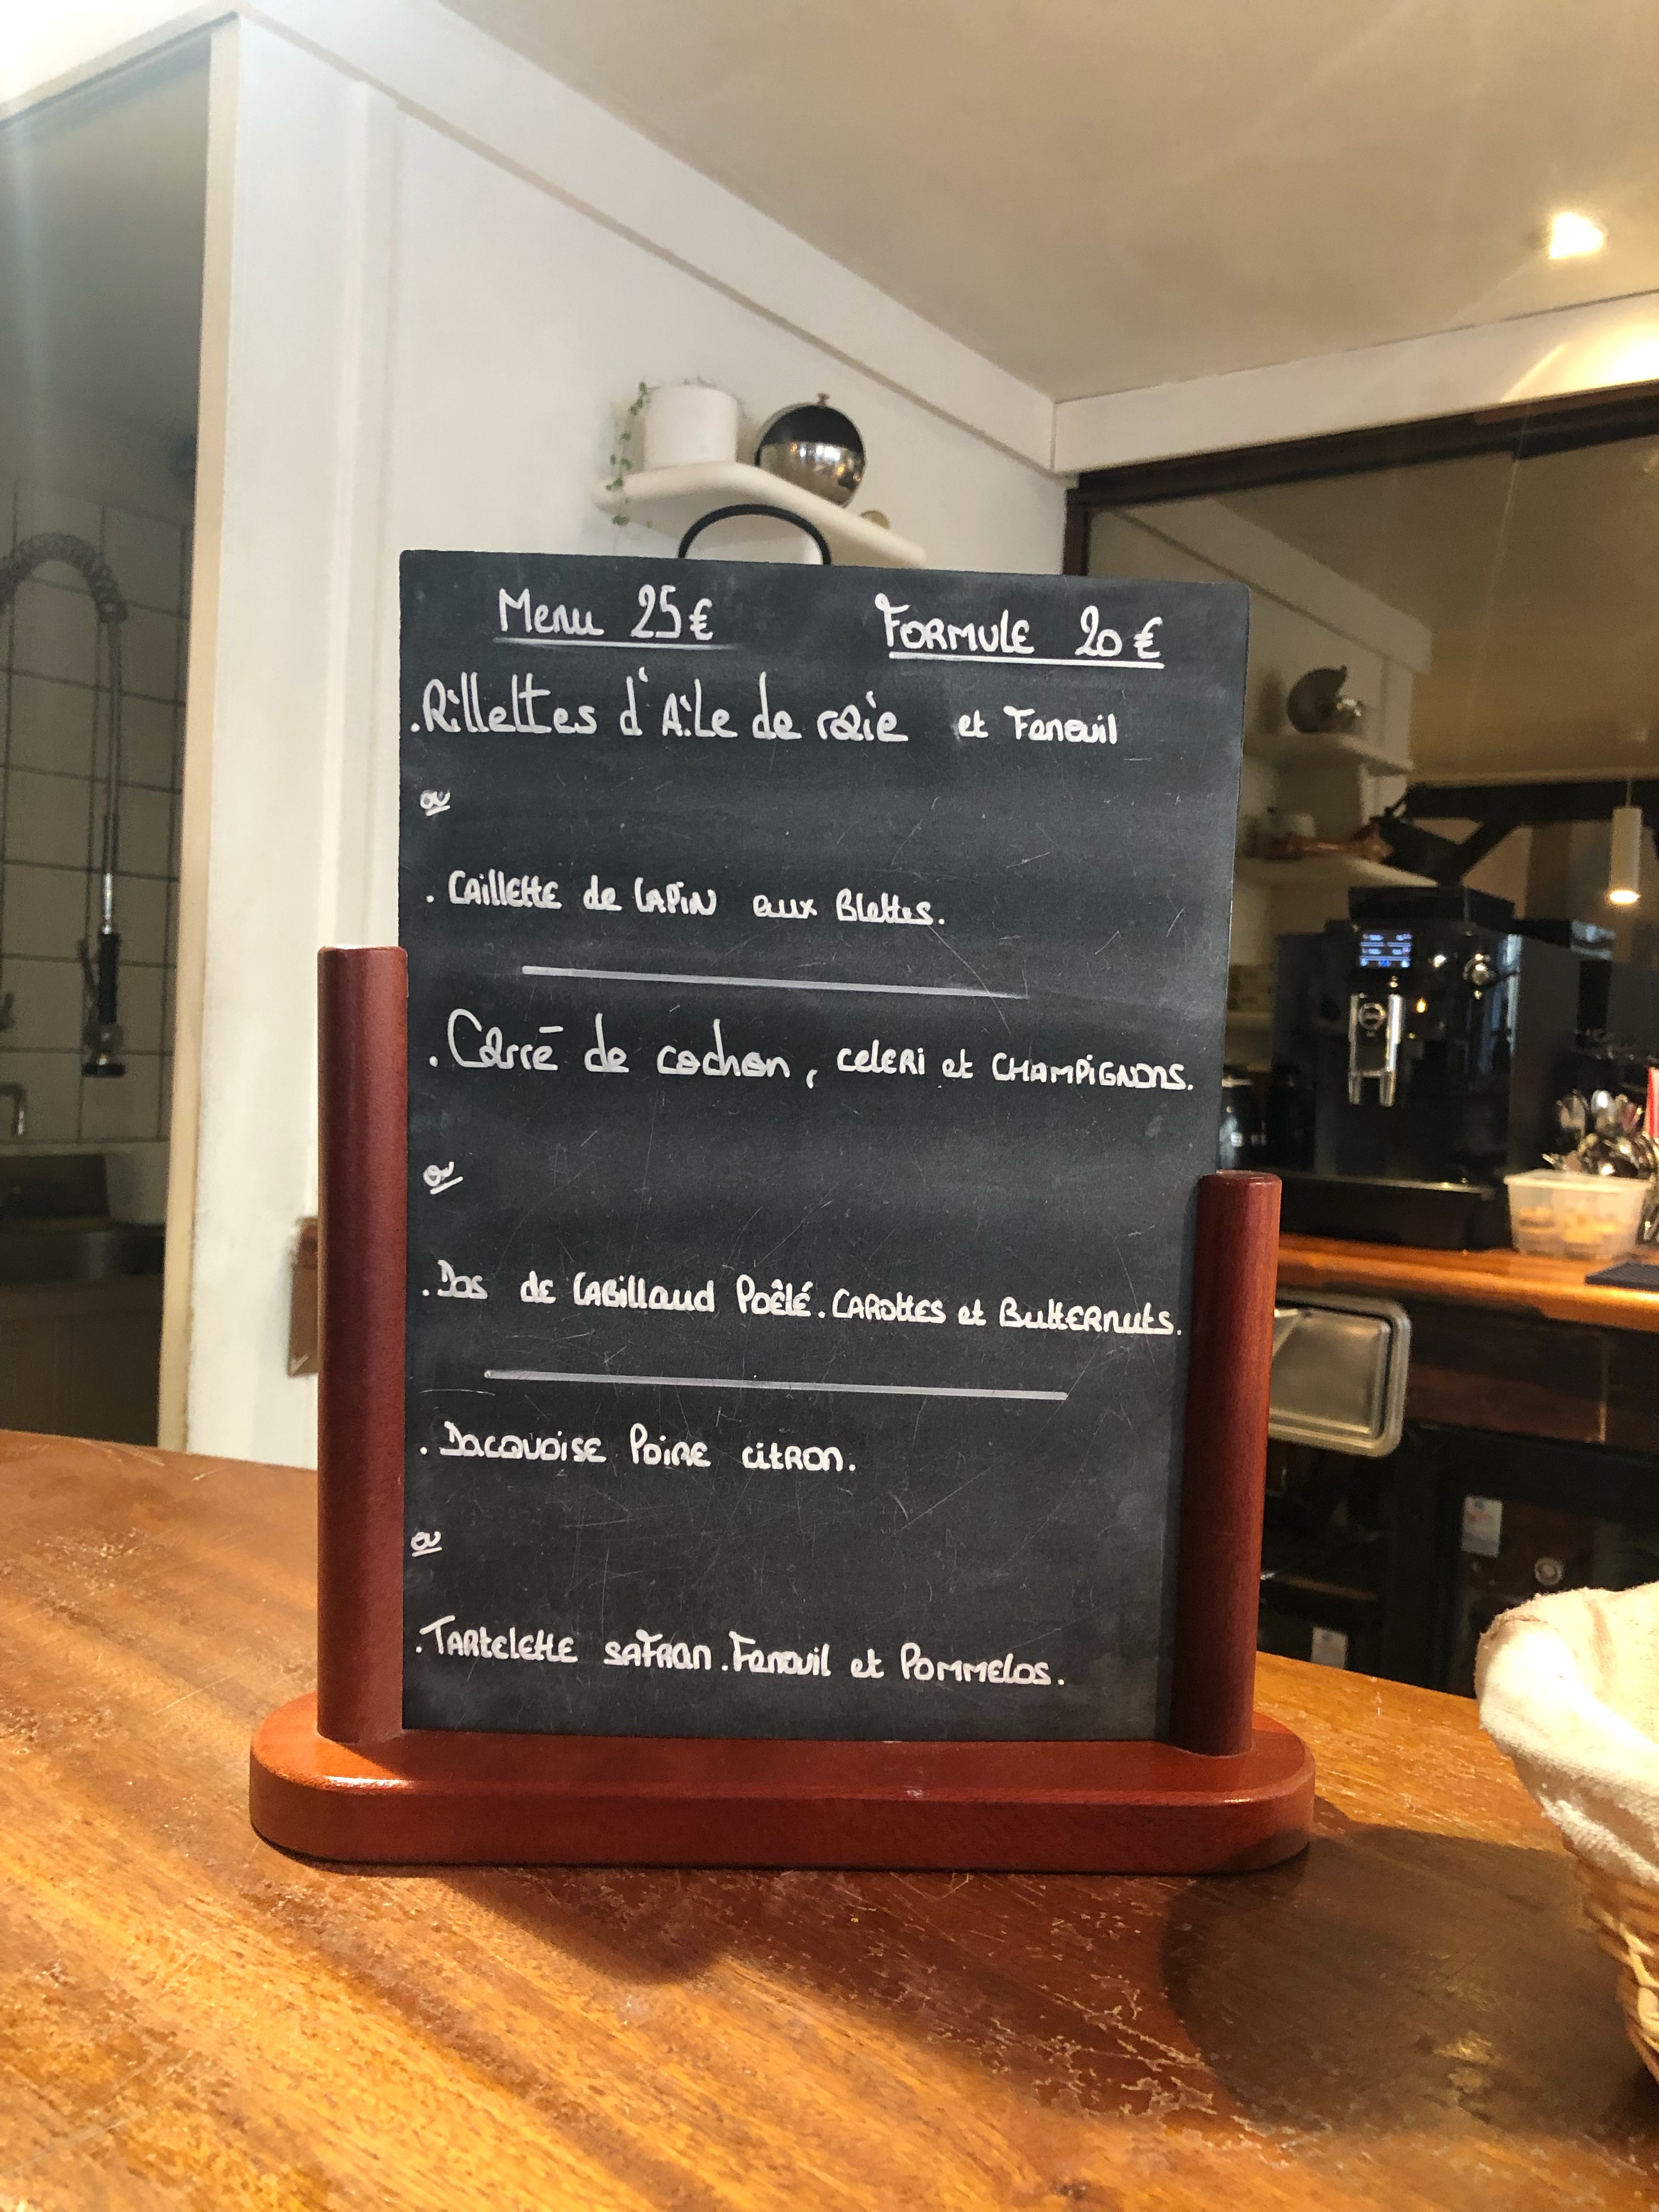 Menu 25€ FORMULE 20€
.Rillettes d'Aile de raie et Fenouil
ou
. CAillette de LAPiN aux Blettes.
. Carré de cochon, celERi et CHAMPiGNONS.
ou
.Dos de CABillaud Poêlé. CAROttes et ButtERnuts.
. DACQUOISE POIRE citRON.
ou
.TARtelette saFRan. Fenouil et POMMElos.